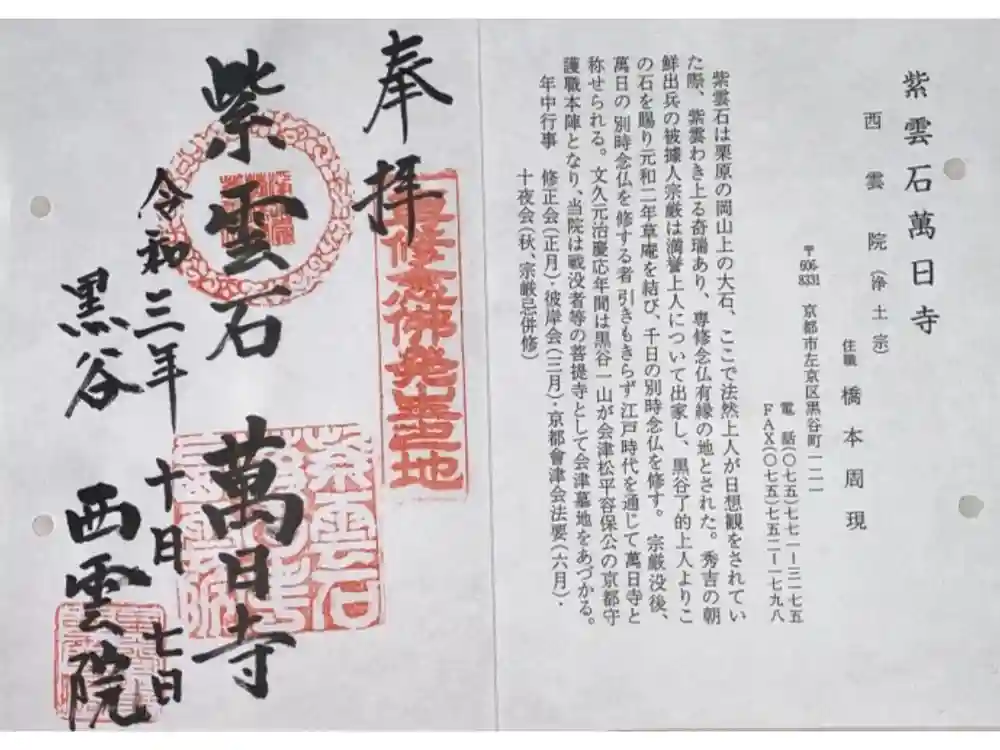 紫雲石萬日寺
西雲院(浄土宗)
住職 橋本周現
〒606-8331 京都市左京区黒谷町一二一
電話(〇七五)七七一―三一七五
FAX(〇七五)七五二―一七九八
紫雲石は栗原の岡山上の大石、ここで法然上人が日想観をされてい
た際、紫雲わき上る奇瑞あり、専修念仏有縁の地とされた。秀吉の朝
鮮出兵の被據人宗厳は満誉上人について出家し、黒谷了的上人よりこ
の石を賜り元和二年草庵を結び、千日の別時念仏を修す。宗厳没後、
萬日の別時念仏を修する者引きもきらず江戸時代を通じて萬日寺と
称せられる。文久元治慶応年間は黒谷一山が会津松平容保公の京都守
護職本陣となり、当院は戦没者等の菩提寺として会津墓地をあづかる。
年中行事 修正会(正月)・彼岸会(三月)・京都會津会法要(六月)・
十夜会(秋、宗厳忌併修)
奉拝
紫雲石 萬日寺
令和三年 十月 七日
黒谷 西雲院